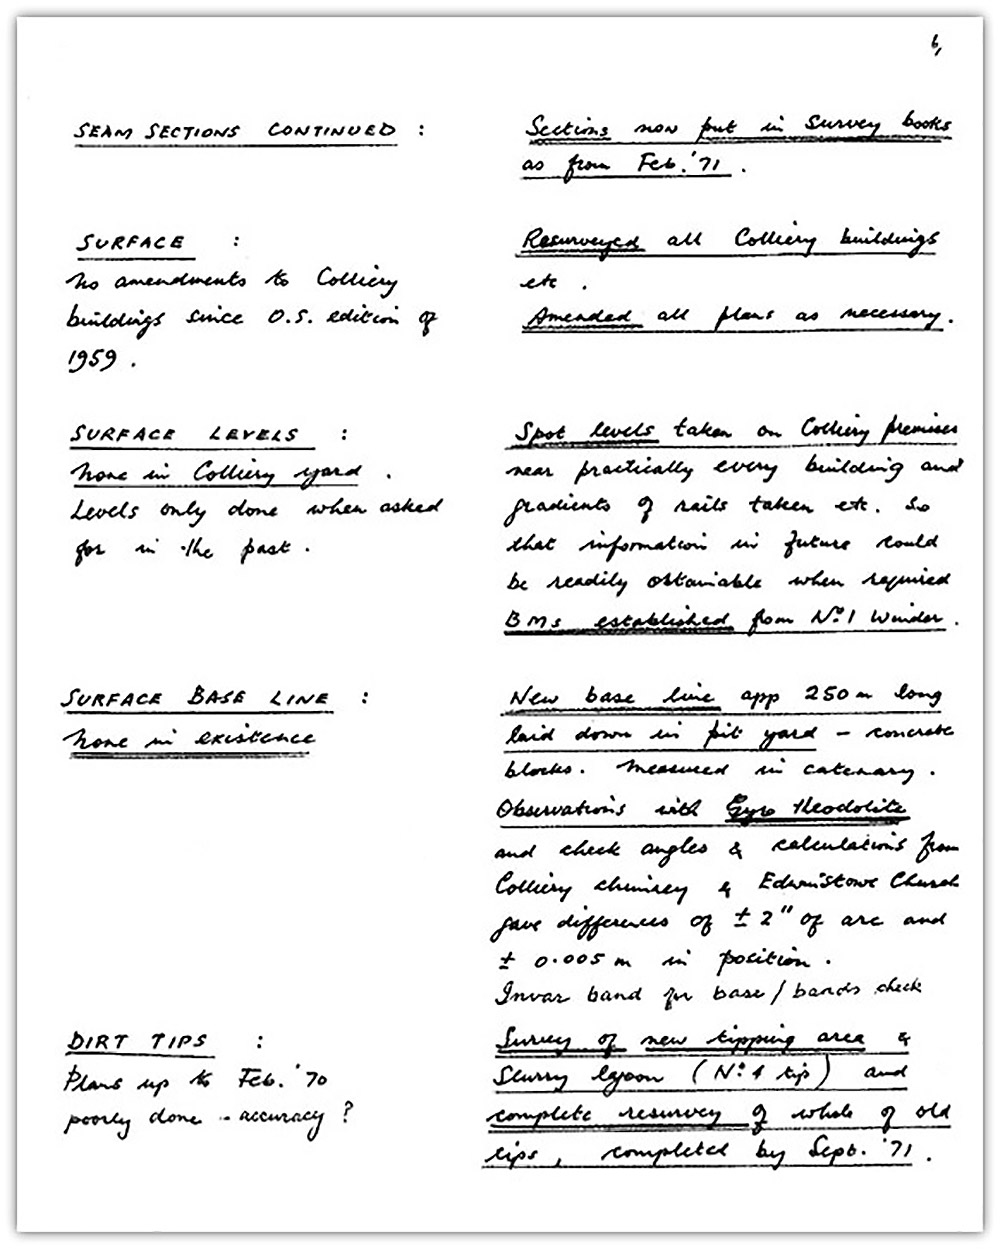 6,
SEAM SECTIONS CONTINUED :
Sections now put in Survey books
as from Feb. '71 .
SURFACE :
No amendments to Colliery
buildings since O.S. edition of
1959 .
Resurveyed all Colliery buildings
etc .
Amended all plans as necessary .
SURFACE LEVELS :
None in Colliery yard .
Levels only done when asked
for in the past .
Spot levels taken on Colliery premises
near practically every building and
gradients of rails taken etc. So
that information in future could
be readily obtainable when required
BMs established from No.1 Winder .
SURFACE BASE LINE :
None in existence
New base line app 250 m long
laid down in pit yard - concrete
blocks. Measured in catenary .
Observations with Gyro Theodolite
and check angles & calculations from
Colliery chimney & Edwinstowe Church
gave differences of ± 2" of arc and
± 0.005 m in position .
Invar band for base / bands check
DIRT TIPS :
Plans up to Feb. '70
poorly done - accuracy ?
Survey of new tipping area &
Slurry lagoon (No. 4 tip) and
complete resurvey of whole of old
tips , completed by Sept. '71 .